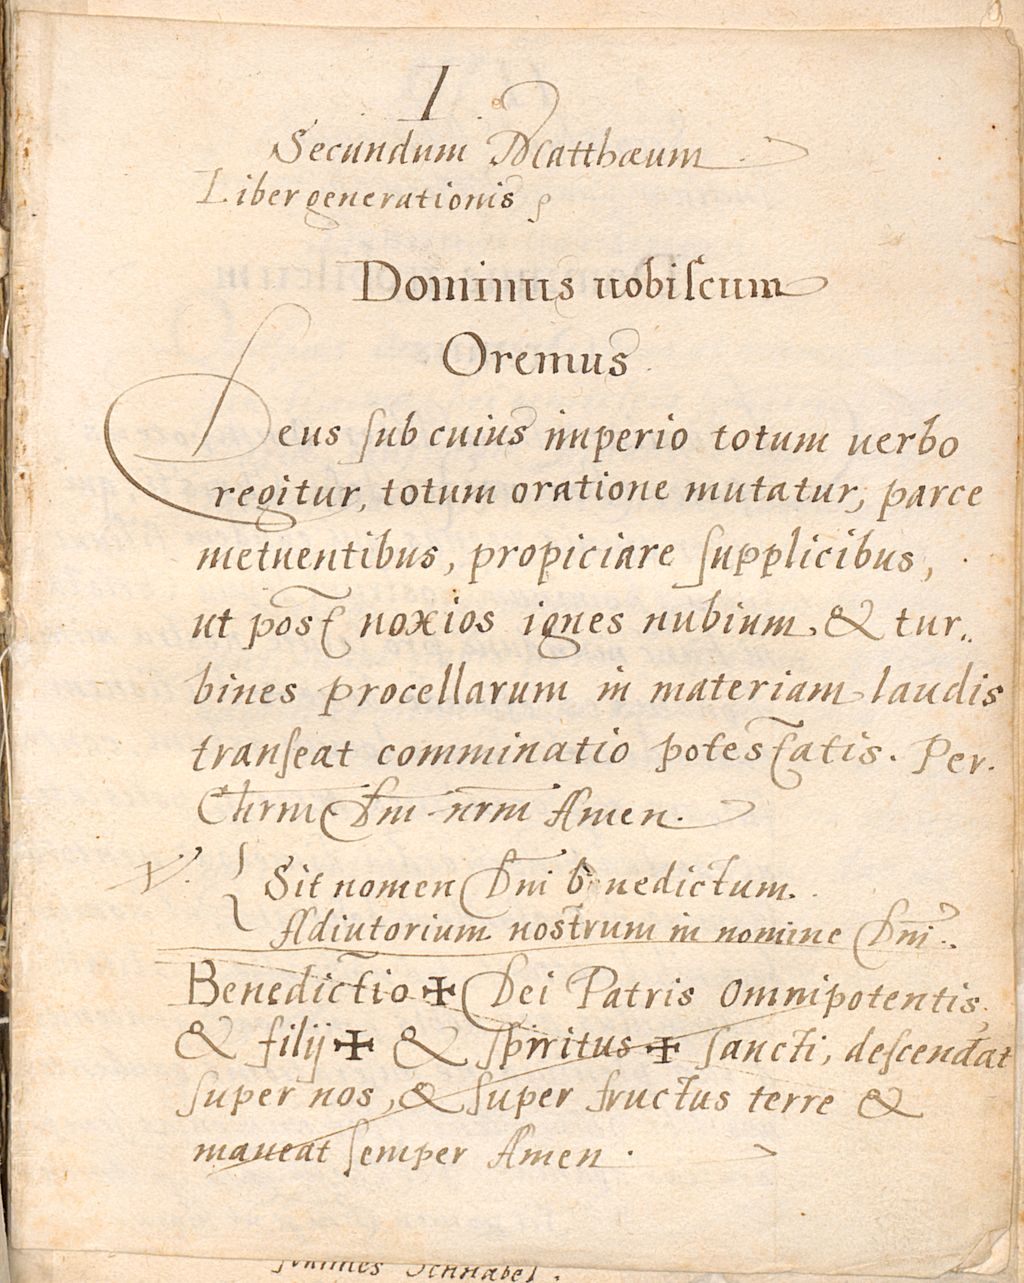 I
Secundum Matthæum
Liber generationis
Dominus uobiscum
Oremus
Deus sub cuius imperio totum uerbo
regitur, totum oratione mutatur, parce
metuentibus, propiciare supplicibus,
ut post noxios ignes nubium & tur„
bines procellarum in materiam laudis
transeat comminatio potestatis. Per.
Chrm Dm̄ nrm̄ Amen.
V. { Sit nomen Dnī benedictum.
Adiutorium nostrum in nomine Dnī.
Benedictio ✠ Dei Patris Omnipotentis
& filij ✠ & spiritus ✠ sancti, descendat
super nos, & super fructus terre &
maneat semper Amen.
Schnabel.